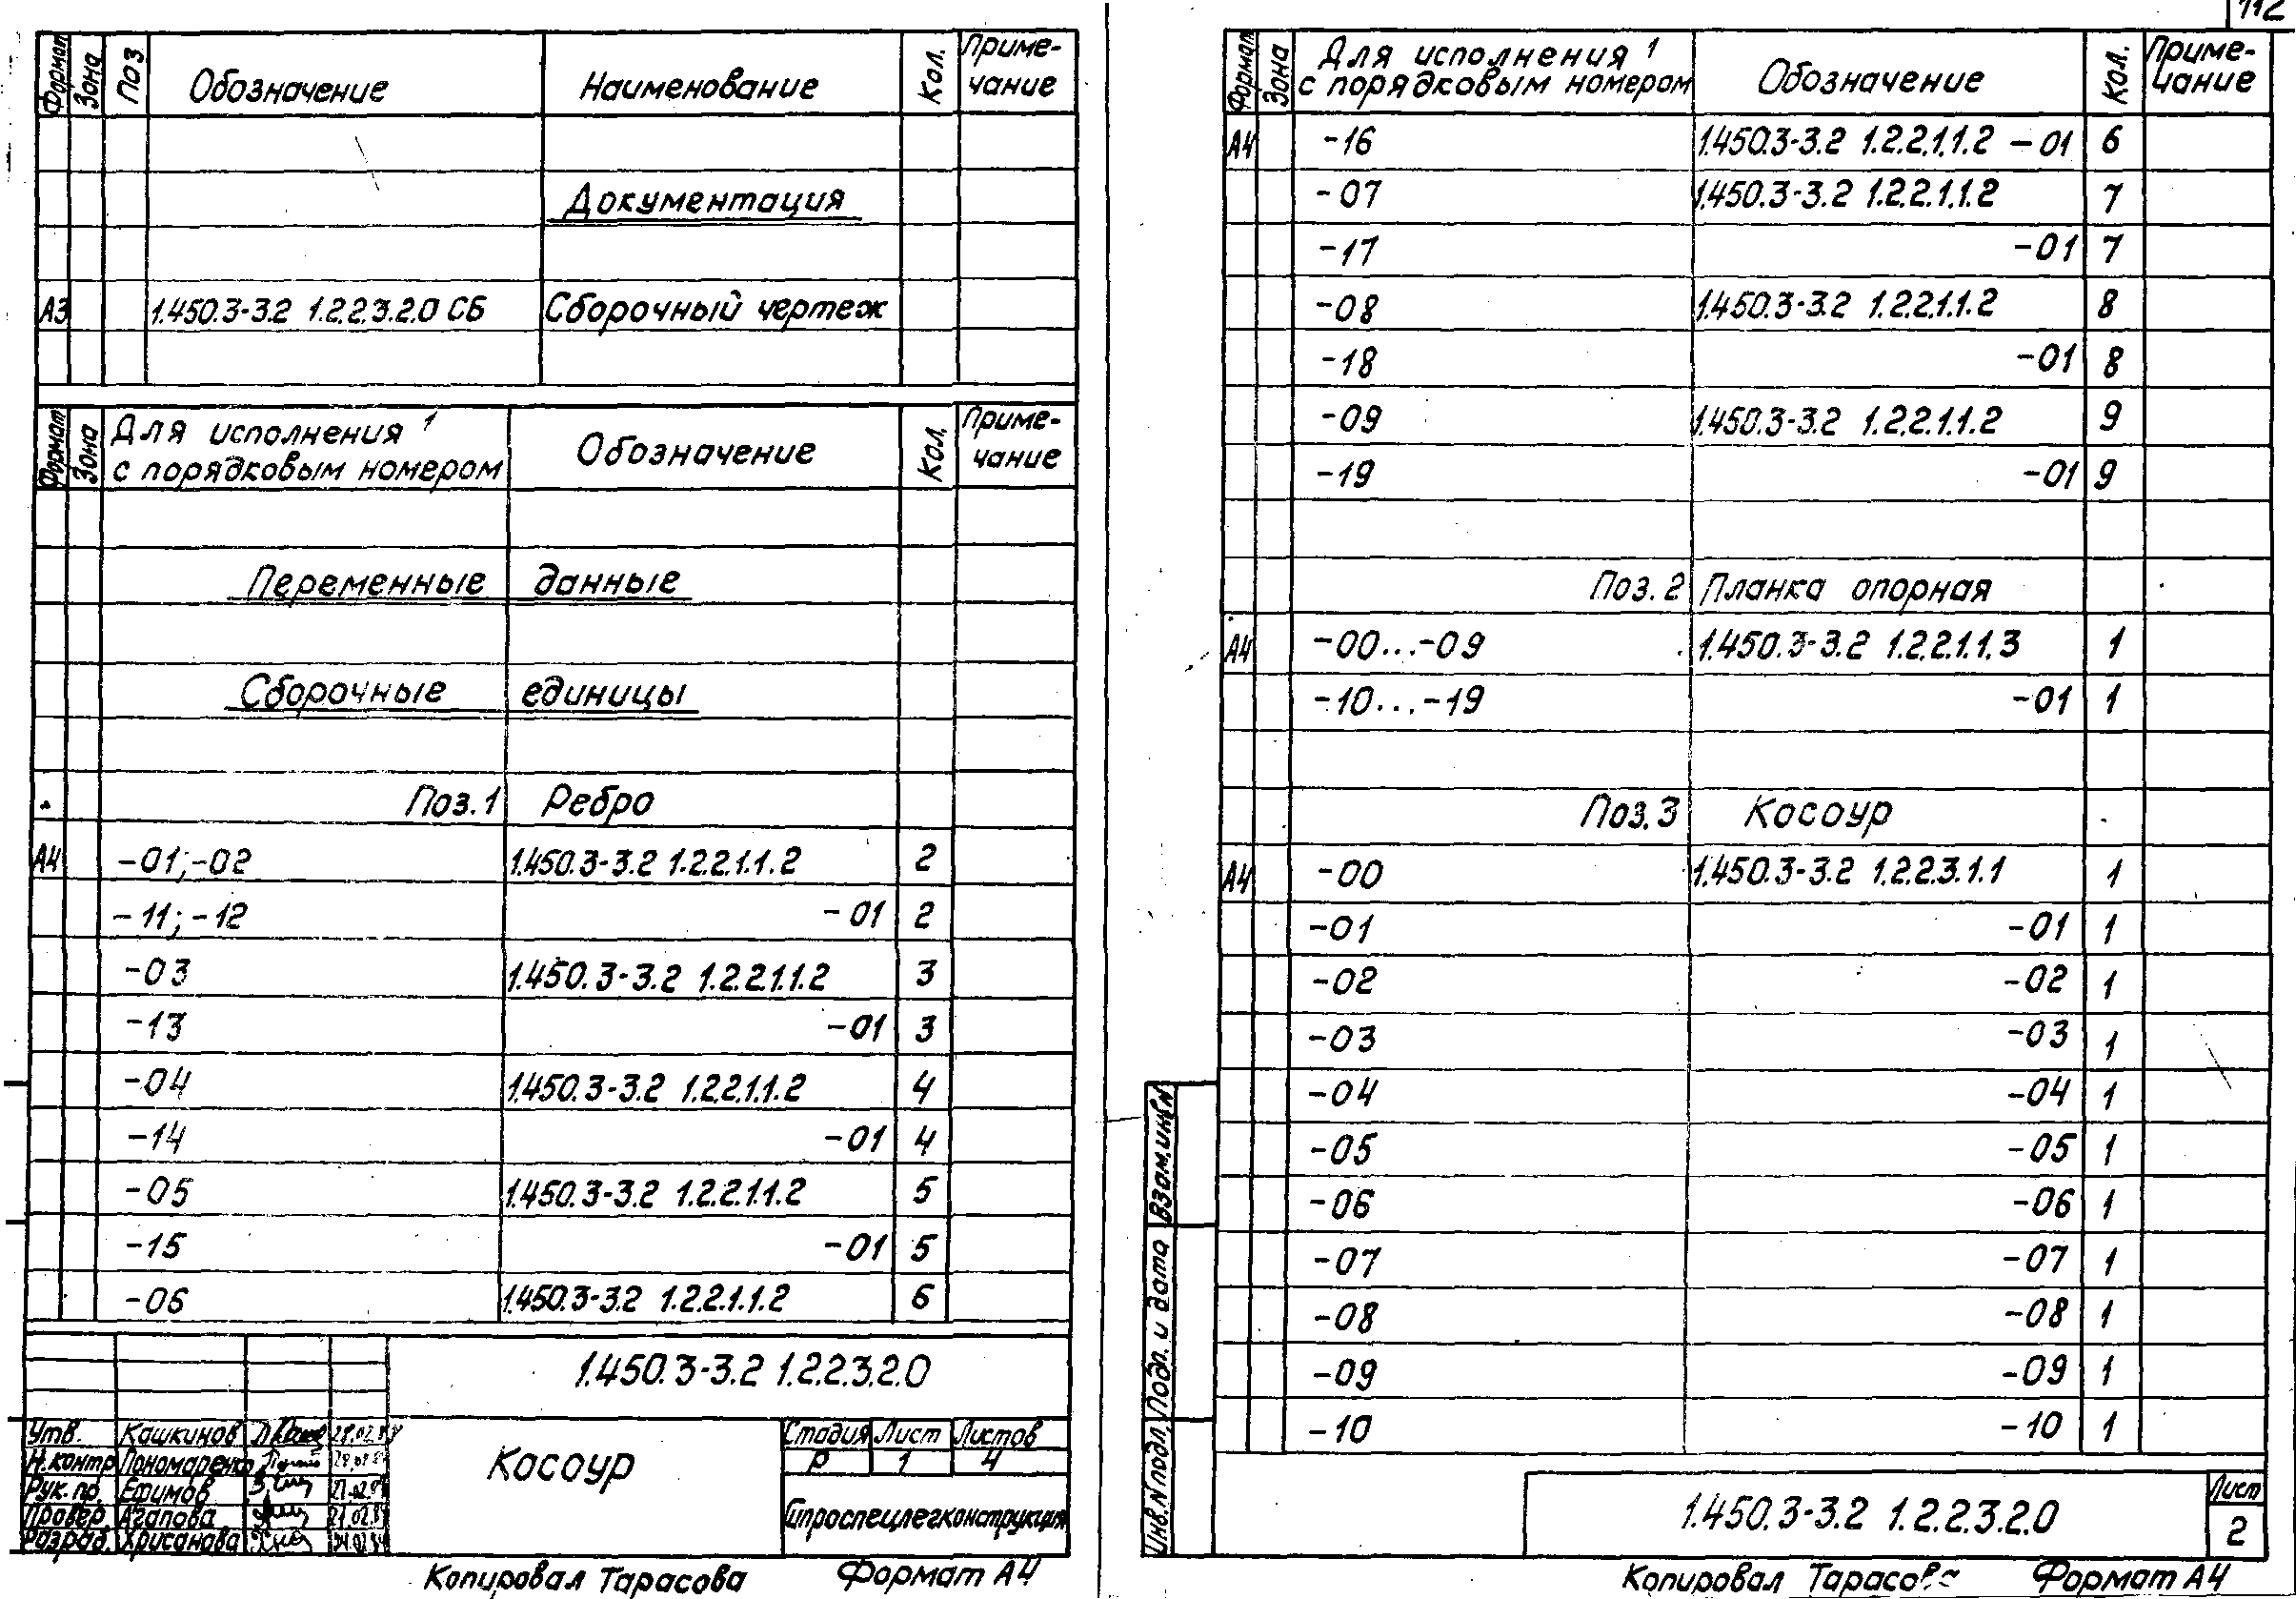 112
Формат Зона Поз Обозначение Наименование Кол. Примечание
Документация
А3 1.450.3-3.2 1.2.2.3.2.0 СБ Сборочный чертеж
Формат Зона Для исполнения 1 с порядковым номером Обозначение Кол. Примечание
Переменные данные
Сборочные единицы
Поз. 1 Ребро
А4 -01; -02 1.450.3-3.2 1.2.2.1.1.2 2
-11; -12 -01 2
-03 1.450.3-3.2 1.2.2.1.1.2 3
-13 -01 3
-04 1.450.3-3.2 1.2.2.1.1.2 4
-14 -01 4
-05 1.450.3-3.2 1.2.2.1.1.2 5
-15 -01 5
-06 1.450.3-3.2 1.2.2.1.1.2 6
1.450.3-3.2 1.2.2.3.2.0
Утв. Кашкинов
Н.контр Пономаренко
Рук. пр. Ефимов
Провер. Агапова
Разраб. Хрисанова
Косоур
Стадия Лист Листов
Р 1 4
Гипроспецлегконструкция
Копировал Тарасова Формат А4
Формат Зона Для исполнения 1 с порядковым номером Обозначение Кол. Примечание
А4 -16 1.450.3-3.2 1.2.2.1.1.2 -01 6
-07 1.450.3-3.2 1.2.2.1.1.2 7
-17 -01 7
-08 1.450.3-3.2 1.2.2.1.1.2 8
-18 -01 8
-09 1.450.3-3.2 1.2.2.1.1.2 9
-19 -01 9
Поз. 2 Планка опорная
А4 -00...-09 1.450.3-3.2 1.2.2.1.1.3 1
-10...-19 -01 1
Поз. 3 Косоур
А4 -00 1.450.3-3.2 1.2.2.3.1.1 1
-01 -01 1
-02 -02 1
-03 -03 1
-04 -04 1
-05 -05 1
-06 -06 1
-07 -07 1
-08 -08 1
-09 -09 1
-10 -10 1
Инв. N подл. Подп. и дата Взам. инв N
1.450.3-3.2 1.2.2.3.2.0
Лист
2
Копировал Тарасова Формат А4